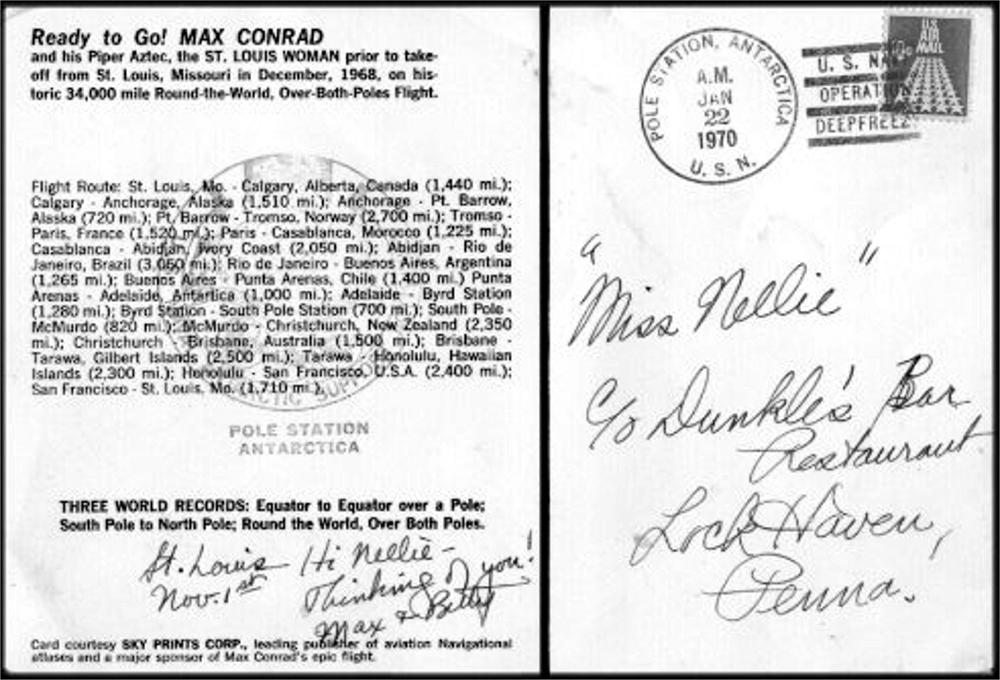 Ready to Go! MAX CONRAD
and his Piper Aztec, the ST. LOUIS WOMAN prior to take-
off from St. Louis, Missouri in December, 1968, on his-
toric 34,000 mile Round-the-World, Over-Both-Poles Flight.
Flight Route: St. Louis, Mo. - Calgary, Alberta, Canada (1,440 mi.);
Calgary - Anchorage, Alaska (1,510 mi.); Anchorage - Pt. Barrow,
Alaska (720 mi.); Pt. Barrow - Tromso, Norway (2,700 mi.); Tromso -
Paris, France (1,520 mi.); Paris - Casablanca, Morocco (1,225 mi.);
Casablanca - Abidjan, Ivory Coast (2,050 mi.); Abidjan - Rio de
Janeiro, Brazil (3,060 mi.); Rio de Janeiro - Buenos Aires, Argentina
(1,265 mi.); Buenos Aires - Punta Arenas, Chile (1,400 mi.) Punta
Arenas - Adelaide, Antartica (1,000 mi.); Adelaide - Byrd Station
(1,280 mi.); Byrd Station - South Pole Station (700 mi.); South Pole -
McMurdo (820 mi.); McMurdo - Christchurch, New Zealand (2,350
mi.); Christchurch - Brisbane, Australia (1,500 mi.); Brisbane -
Tarawa, Gilbert Islands (2,500 mi.); Tarawa - Honolulu, Hawaiian
Islands (2,300 mi.); Honolulu - San Francisco, U.S.A. (2,400 mi.);
San Francisco - St. Louis, Mo. (1,710 mi.).
POLE STATION
ANTARCTICA
THREE WORLD RECORDS: Equator to Equator over a Pole;
South Pole to North Pole; Round the World, Over Both Poles.
St. Louis
Nov. 1st
Hi Nellie -
Thinking of you!
Max & Betty
Card courtesy SKY PRINTS CORP., leading publisher of aviation Navigational
atlases and a major sponsor of Max Conrad's epic flight.
POLE STATION, ANTARCTICA
A.M.
JAN
22
1970
U. S. N.
U. S. NA
OPERATI
DEEPFREEZ
U.S.
AIR
MAIL
"Miss Nellie"
c/o Dunkle's Bar
Restaurant
Lock Haven,
Penna.